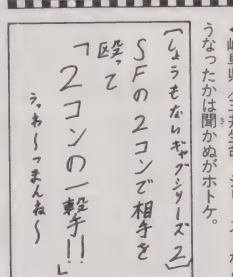 うなったかは聞かぬがホトケ。
〔しょうもないギャグシリーズ2〕
SFの2コンで相手を
殴って
「2コンの一撃手!!」
うわ〜つまんね〜